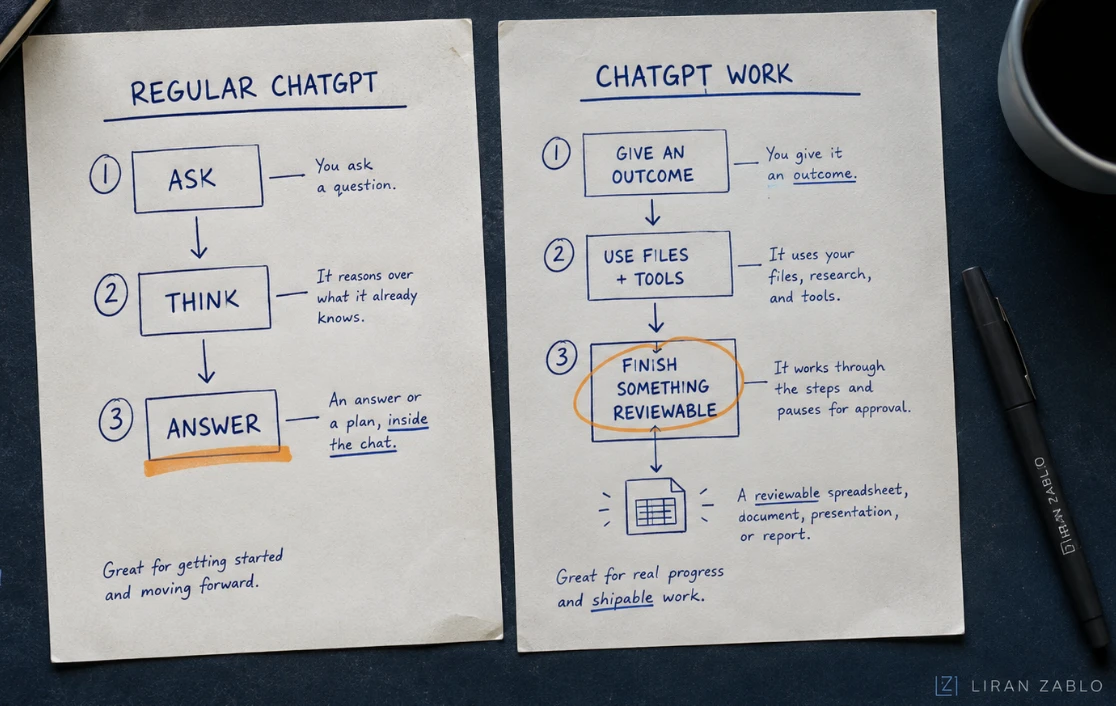 REGULAR CHATGPT
1
ASK
You ask
a question.
2
THINK
It reasons over
what it already
knows.
3
ANSWER
An answer or
a plan, inside
the chat.
Great for getting started
and moving forward.
CHATGPT WORK
1
GIVE AN
OUTCOME
You give it
an outcome.
2
USE FILES
+ TOOLS
It uses your
files, research,
and tools.
3
FINISH
SOMETHING
REVIEWABLE
It works through
the steps and
pauses for approval.
A reviewable spreadsheet,
document, presentation,
or report.
Great for real progress
and shipable work.
LIRAN ZABLO